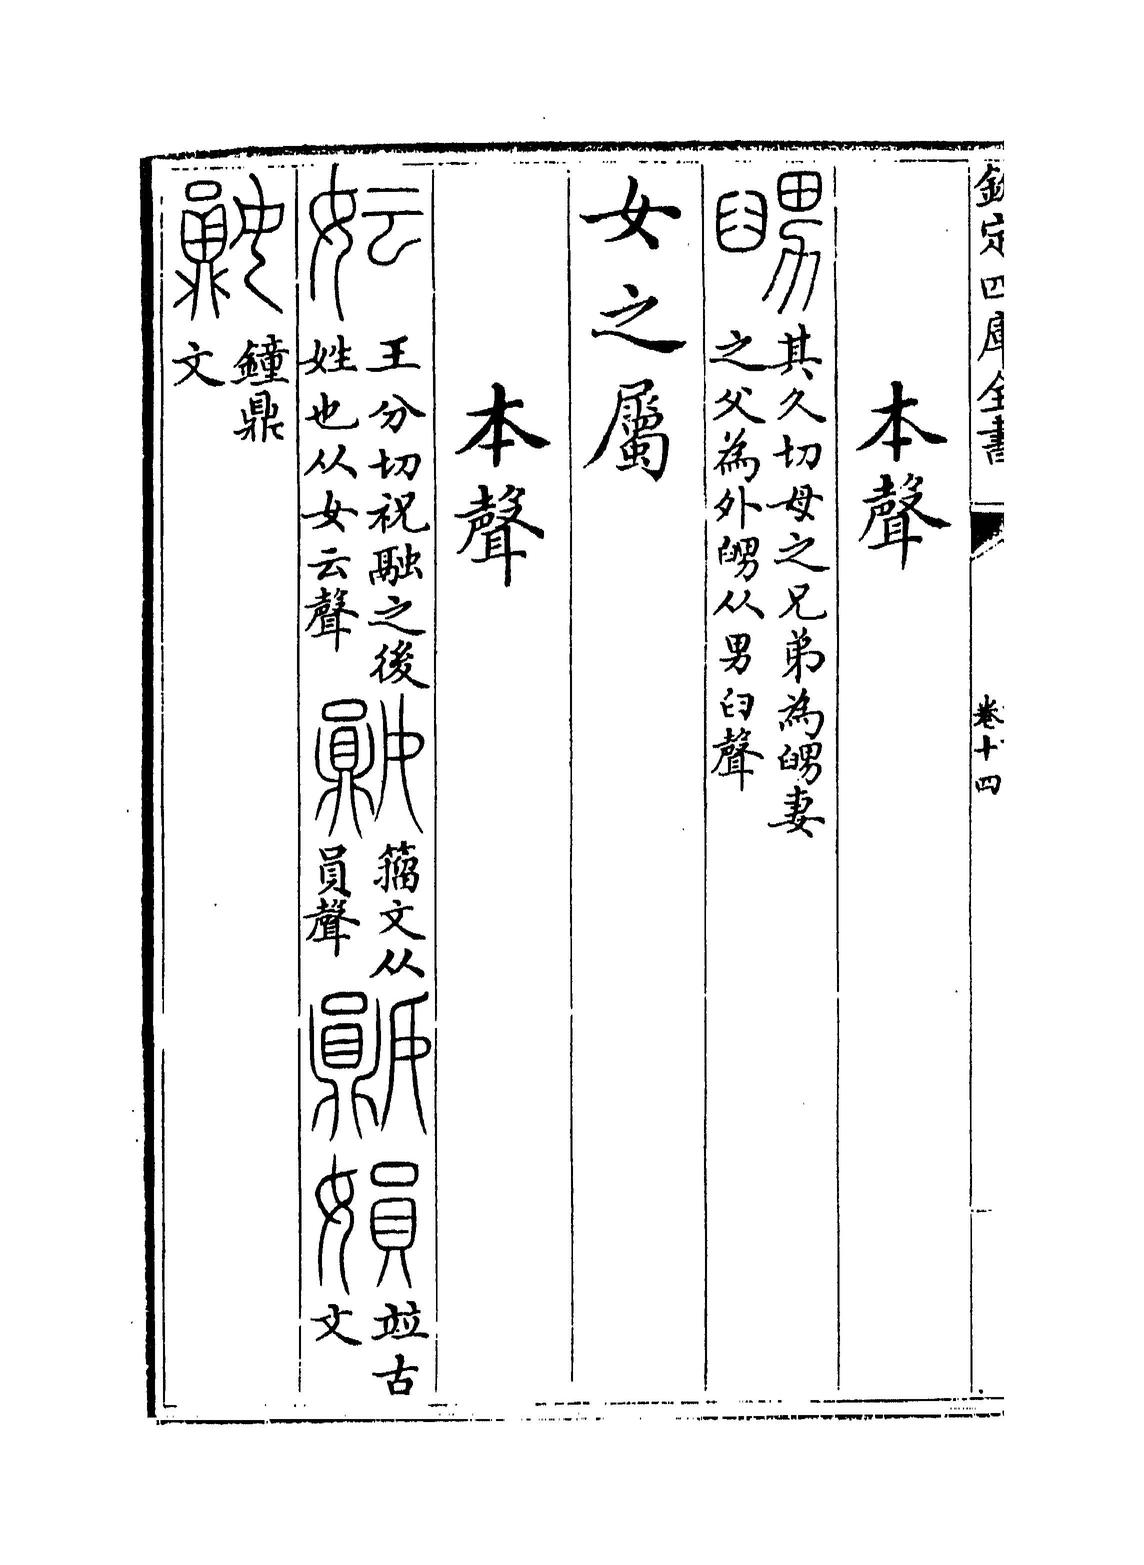 欽定四庫全書
卷十四
本聲
舅 其久切母之兄弟為舅妻之父為外舅从男臼聲
女之屬
本聲
妘 王分切祝融之後姓也从女云聲 䢵 籀文从員聲 並古文
鐘鼎文